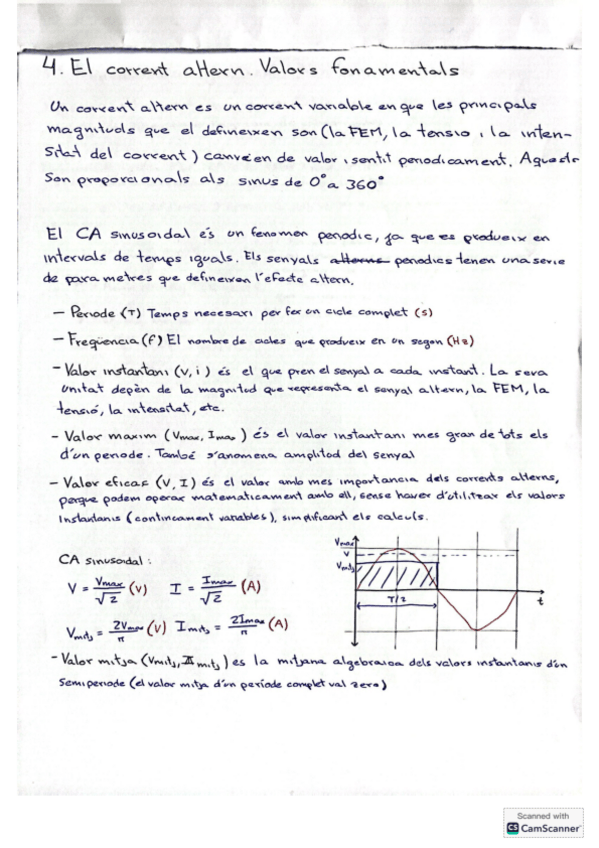 4. El corrent altern. Valors fonamentals
Un corrent altern es un corrent variable en que les principals
magnituds que el defineixen son (la FEM, la tensio i la inten-
sitat del corrent) canvien de valor i sentit periodicament. Aquests
Son proporcionals als sinus de 0° a 360°
El CA sinusoidal és un fenomen periodic, ja que es produeix en
intervals de temps iguals. Els senyals alterns periodics tenen una serie
de parametres que defineixen l'efecte altern.
- Periode (T) Temps necesari per fer un cicle complet (s)
- Freqüencia (f) El nombre de cicles que produeix en un segon (Hz)
- Valor instantani (v, i) és el que pren el senyal a cada instant. La seva
unitat depèn de la magnitud que representa el senyal altern, la FEM, la
tensió, la intensitat, etc.
- Valor maxim (Vmax, Imax) és el valor instantani mes gran de tots els
d'un periode. També s'anomena amplitud del senyal
- Valor eficaç (V, I) és el valor amb mes importancia dels corrents alterns,
perque podem operar matematicament amb ell, sense haver d'utilitzar els valors
instantanis (contincament variables), simplificant els calculs.
CA sinusoidal:
V = Vmax/√2 (V) I = Imax/√2 (A)
Vmitj = 2Vmax/π (V) Imitj = 2Imax/π (A)
Vmax
V
Vmitj
T/2
t
- Valor mitja (Vmitj, Imitj) es la mitjana algebraica dels valors instantanis d'un
Semiperiode (el valor mitja d'un període complet val zero)
Scanned with
CS CamScanner